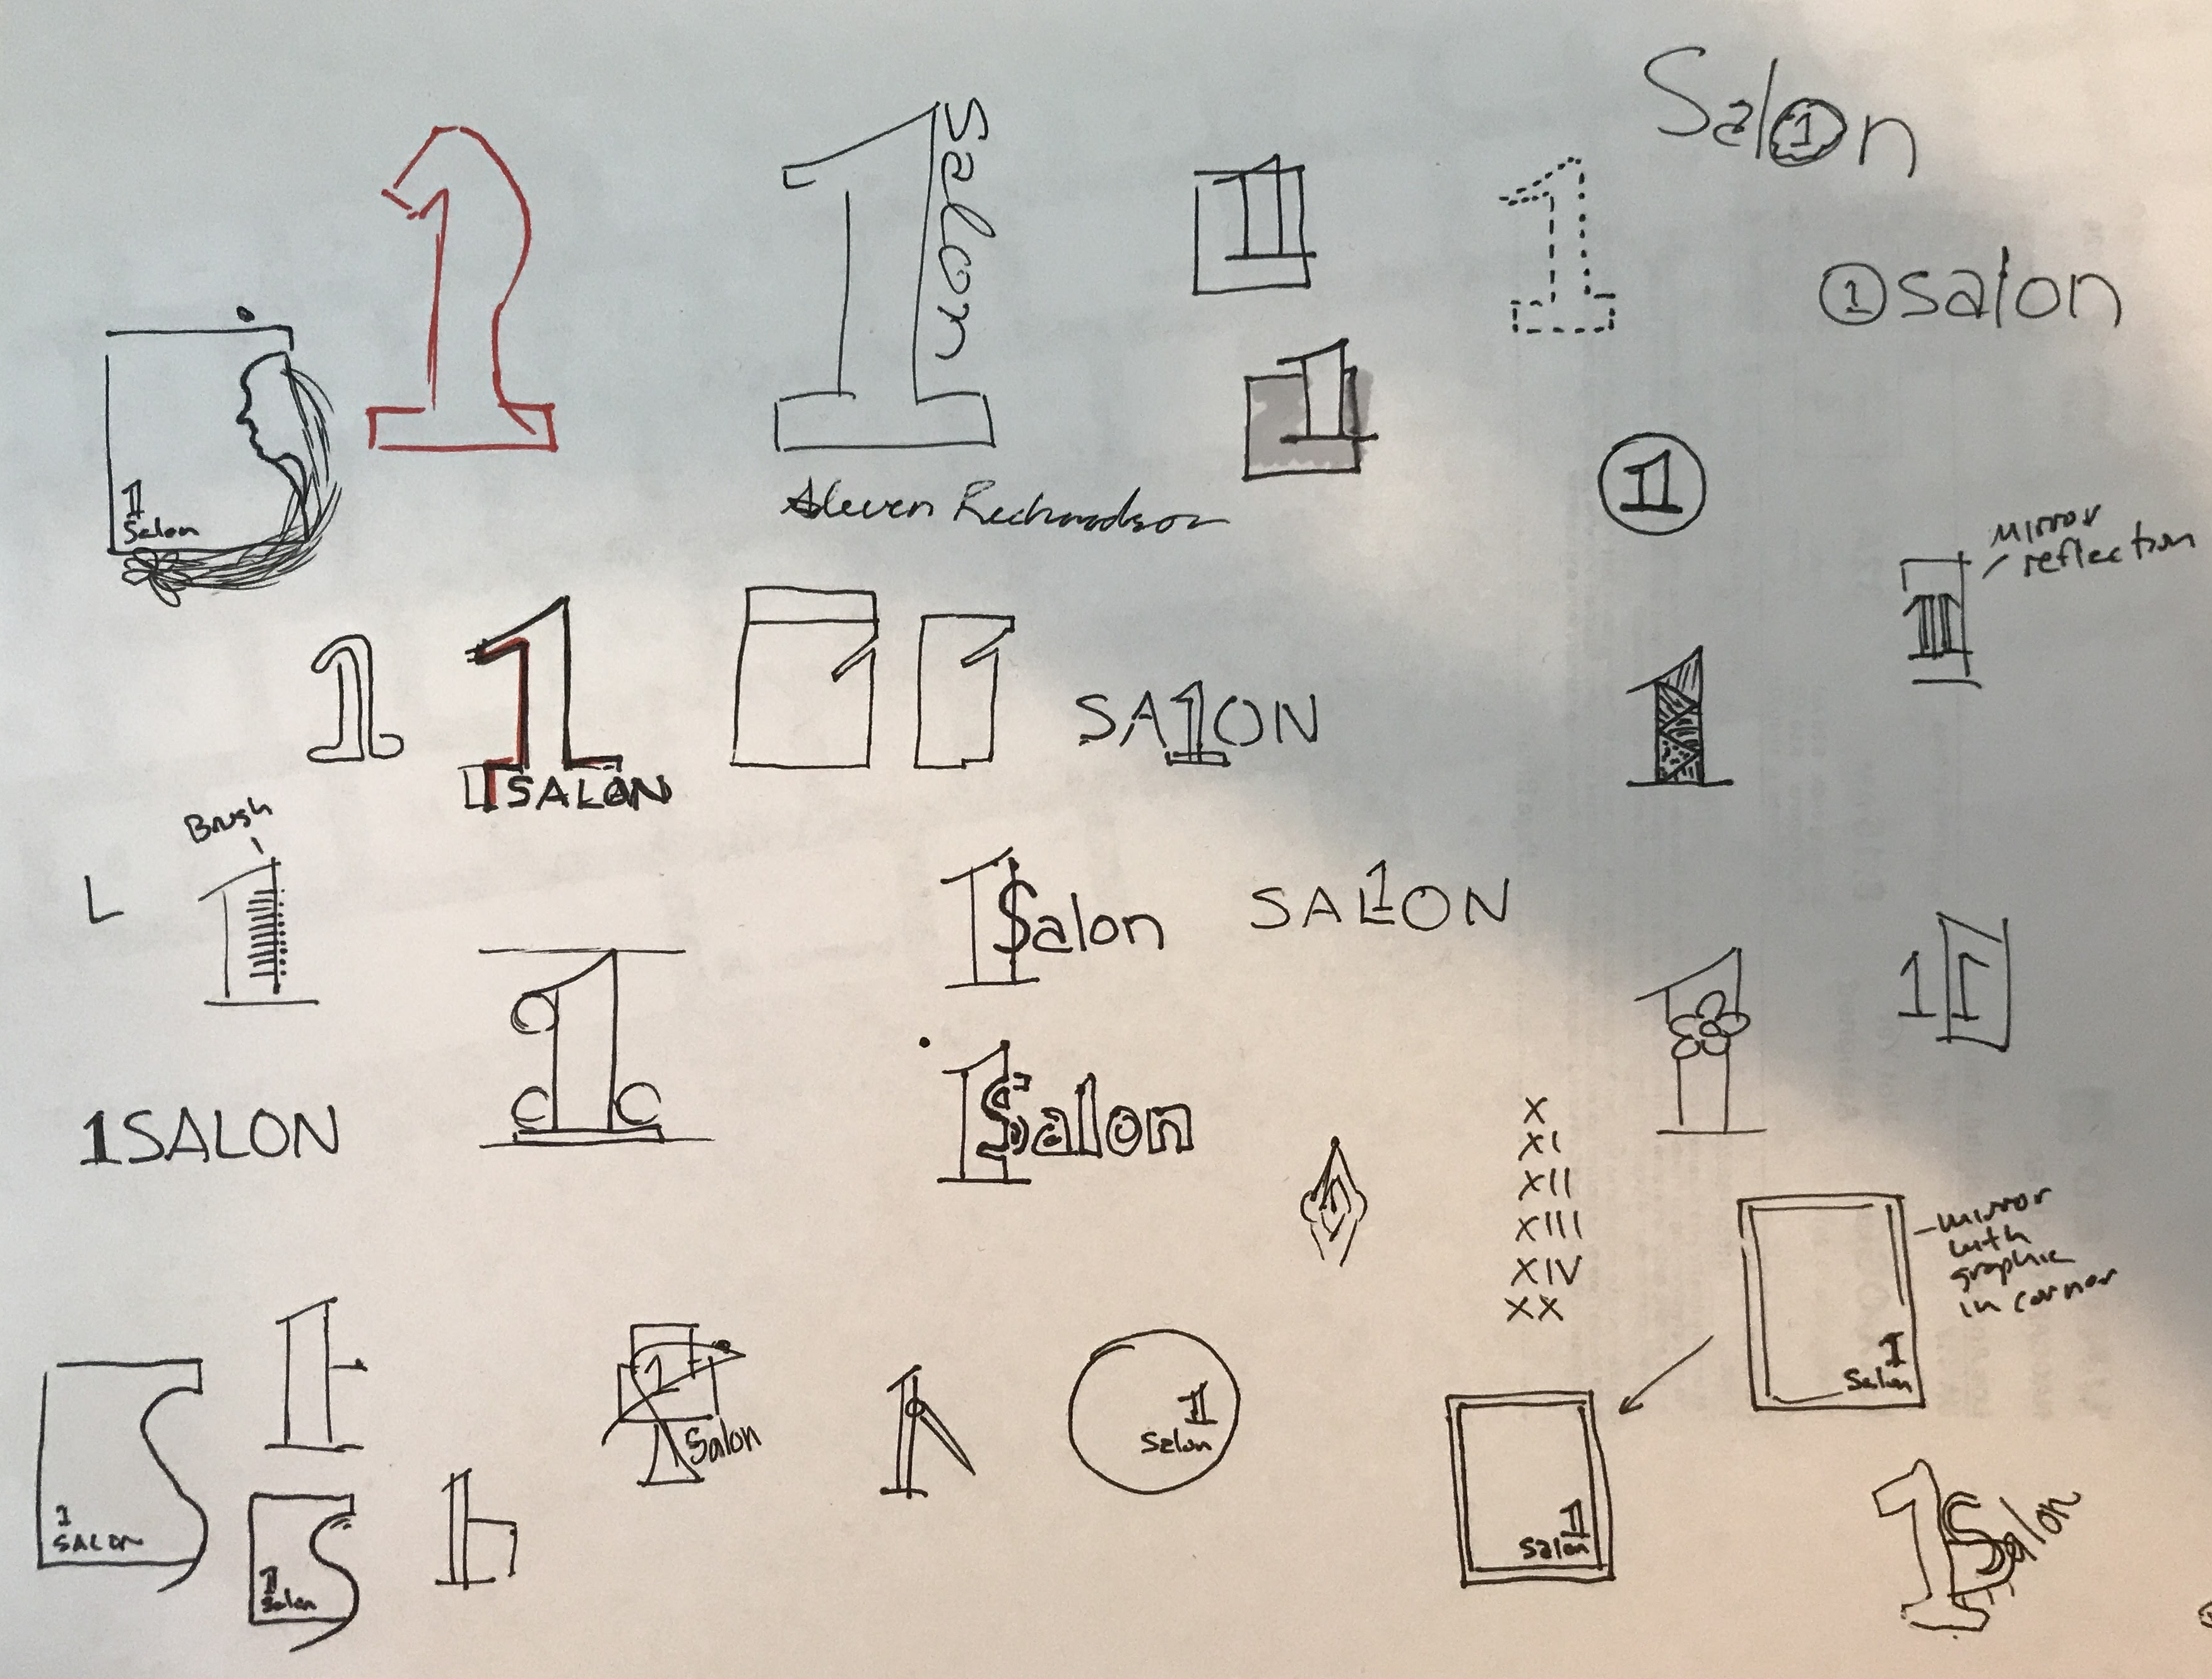 Salon
1
1
Salon
1
1
1
1 salon
1
Steven Richardson
1
Salon
1
mirror
reflection
1
1
SALON
1
1
SA1ON
1
1
Brush
L
1
1Salon
SAL1ON
1
1
1
1SALON
1Salon
X
XI
XII
XIII
XIV
XX
mirror
with
graphic
in corner
1
Salon
1
1
Salon
1
SALON
1
Salon
1
Salon
1
Salon
1Salon